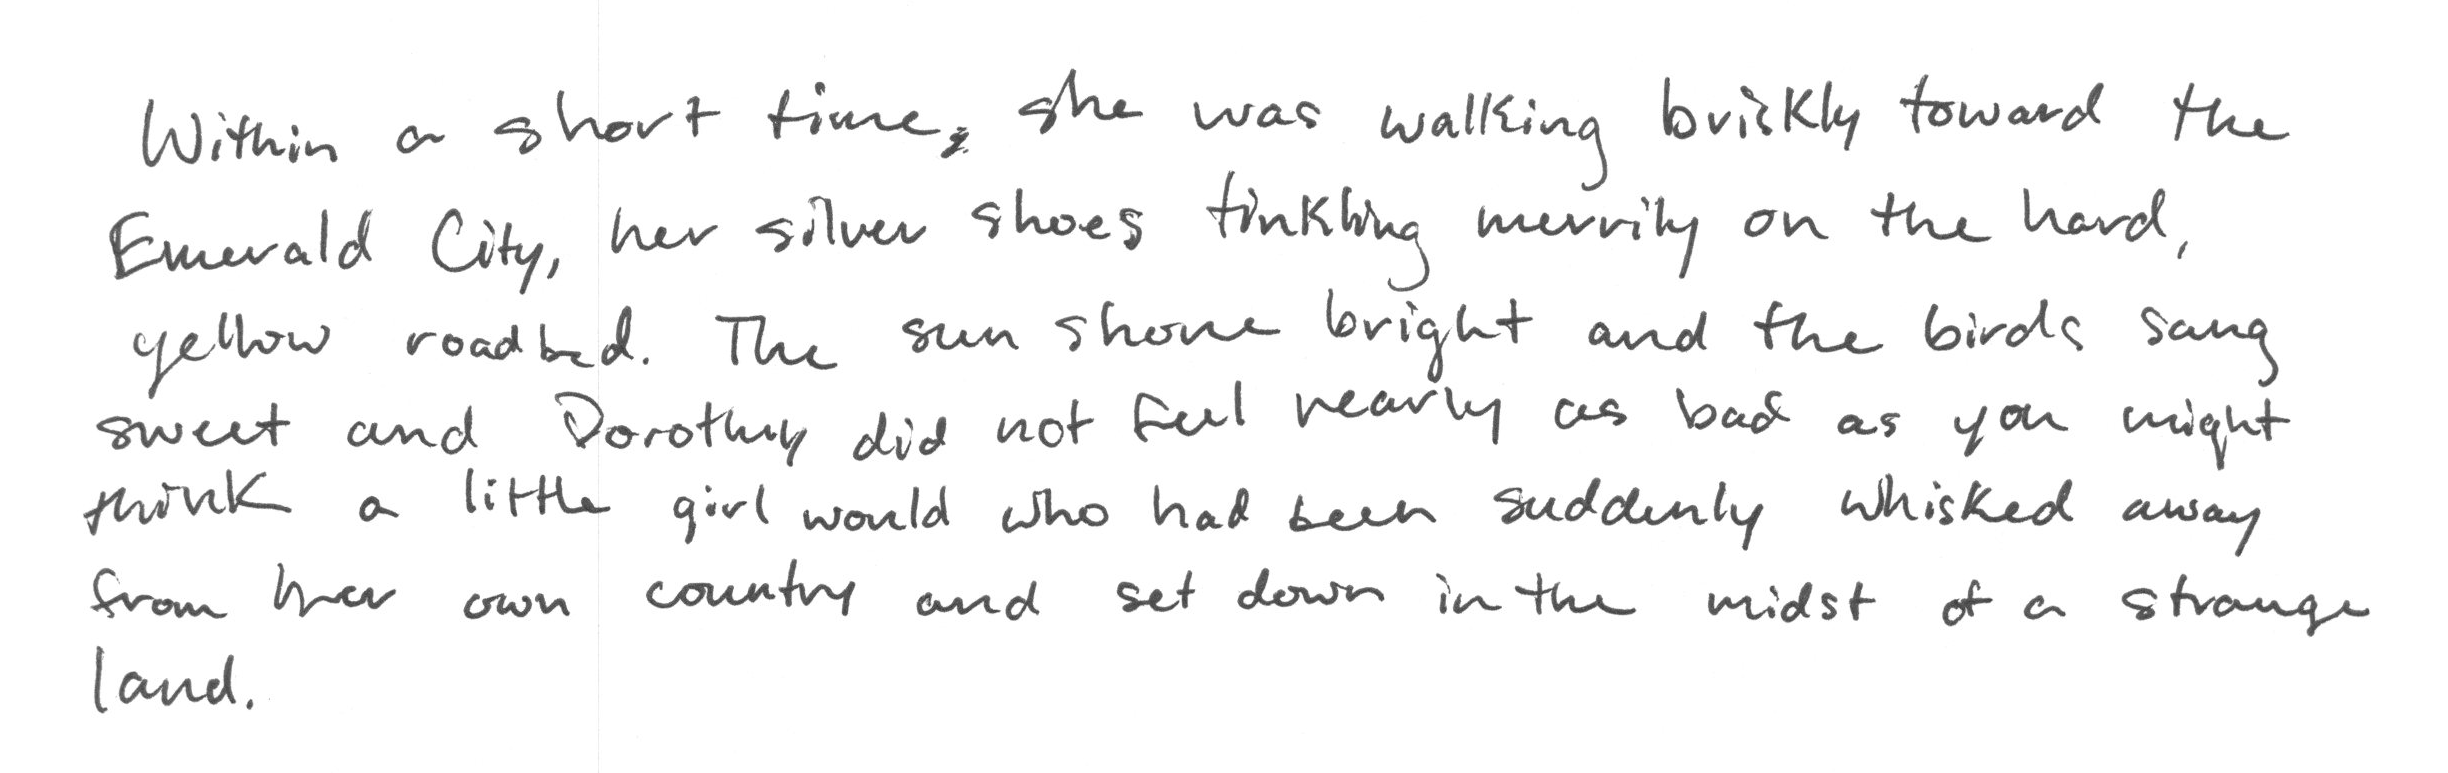 Within a short time, she was walking briskly toward the
Emerald City, her silver shoes tinkling merrily on the hard,
yellow roadbed. The sun shone bright and the birds sang
sweet and Dorothy did not feel nearly as bad as you might
think a little girl would who had been suddenly whisked away
from her own country and set down in the midst of a strange
land.